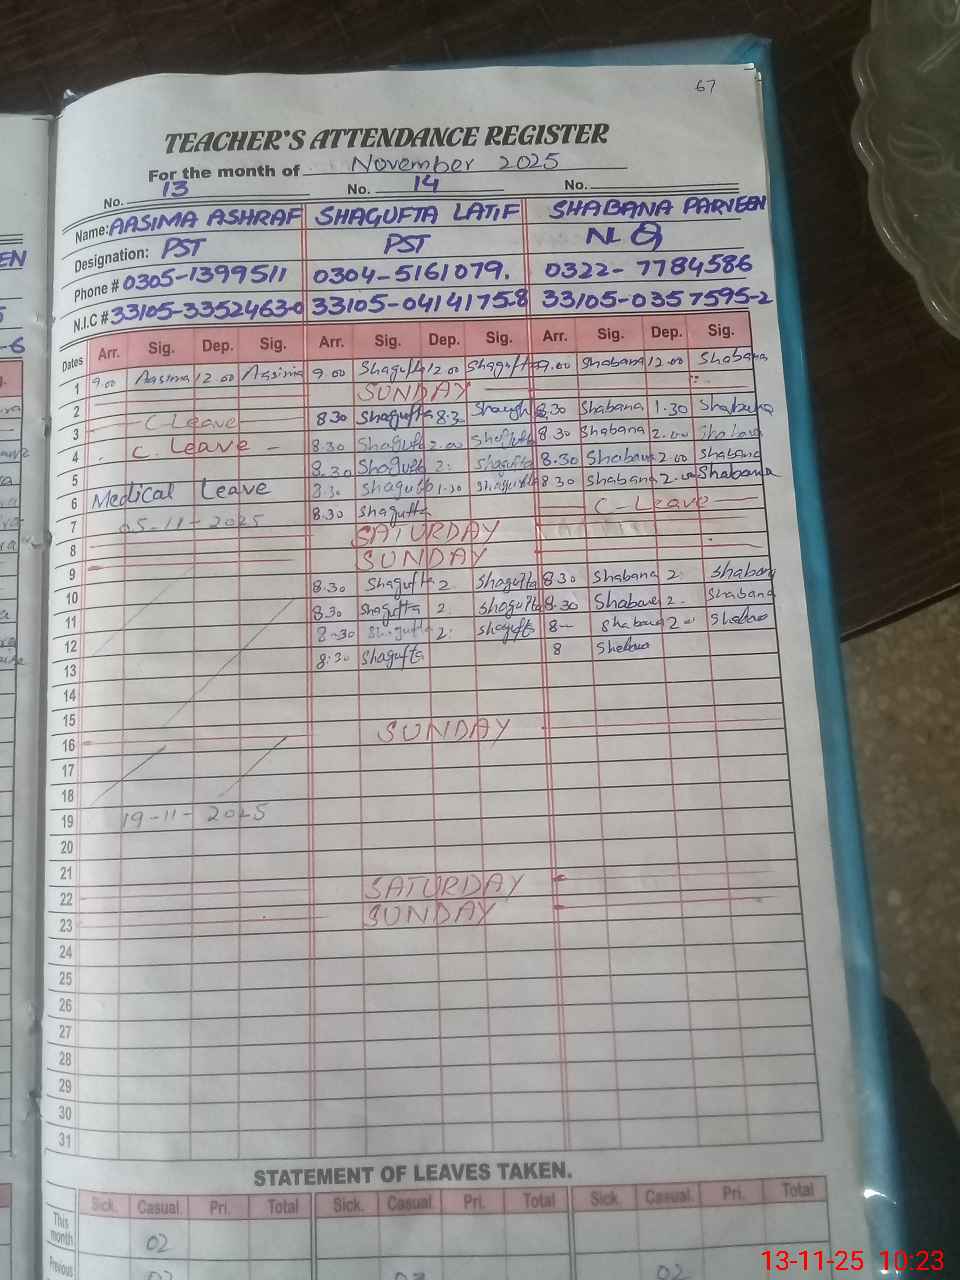 67
TEACHER'S ATTENDANCE REGISTER
For the month of November 2025
No. 13 No. 14 No.
Name: AASIMA ASHRAF SHAGUFTA LATIF SHABANA PARVEEN
Designation: PST PST N Q
Phone # 0305-1399511 0304-5161079. 0322-7784586
N.I.C # 33105-3352463-0 33105-0414175-8 33105-0357595-2
Dates Arr. Sig. Dep. Sig. Arr. Sig. Dep. Sig. Arr. Sig. Dep. Sig.
1 9.00 Aasima 12.00 Aasima 9.00 Shagufta 12.00 Shagufta 9.00 Shabana 12.00 Shabana
2 SUNDAY
3 C Leave 8.30 Shagufta 8.30 Shabana 1.30 Shabana
4 C. Leave 8.30 Shagufta 2.00 Shagufta 8.30 Shabana 2.00 Shabana
5 8.30 Shagufta 2. Shagufta 8.30 Shabana 2.00 Shabana
6 Medical Leave 8.30 Shagufta 1.30 Shagufta 8.30 Shabana 2.00 Shabana
7 05-11-2025 8.30 Shagufta C-Leave
8 SATURDAY
9 SUNDAY
10 8.30 Shagufta 2. Shagufta 8.30 Shabana 2. Shabana
11 8.30 Shagufta 2. Shagufta 8.30 Shabana 2. Shabana
12 8-30 Shagufta 2. Shagufta 8- Shabana 2- Shabana
13 8.30 Shagufta 8 Shabana
14
15
16 SUNDAY
17
18
19 19-11-2025
20
21
22 SATURDAY
23 SUNDAY
24
25
26
27
28
29
30
31
STATEMENT OF LEAVES TAKEN.
Sick. Casual. Pri. Total Sick. Casual. Pri. Total Sick. Casual. Pri. Total
This month 02
Previous 02
13-11-25 10:23